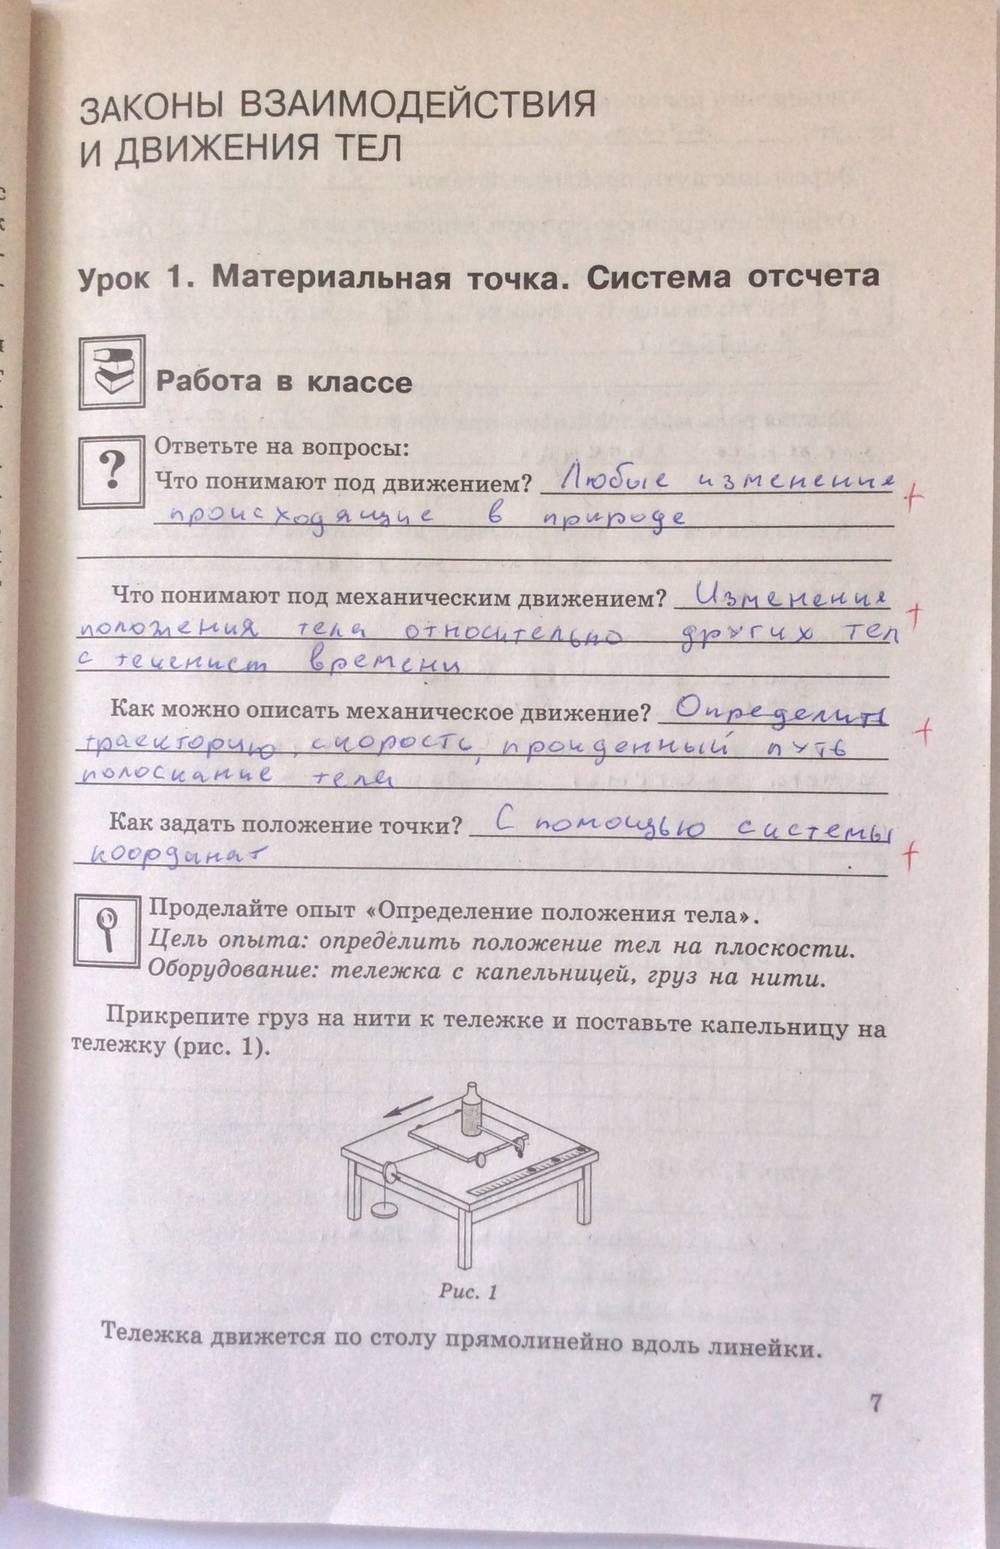 ЗАКОНЫ ВЗАИМОДЕЙСТВИЯ
И ДВИЖЕНИЯ ТЕЛ
Урок 1. Материальная точка. Система отсчета
Работа в классе
?
Ответьте на вопросы:
Что понимают под движением? Любые изменения +
происходящие в природе
Что понимают под механическим движением? Изменения +
положения тела относительно других тел
с течением времени
Как можно описать механическое движение? Определить +
траекторию, скорость, пройденный путь
тела
Как задать положение точки? С помощью системы
координат +
Проделайте опыт «Определение положения тела».
Цель опыта: определить положение тел на плоскости.
Оборудование: тележка с капельницей, груз на нити.
Прикрепите груз на нити к тележке и поставьте капельницу на
тележку (рис. 1).
Рис. 1
Тележка движется по столу прямолинейно вдоль линейки.
7